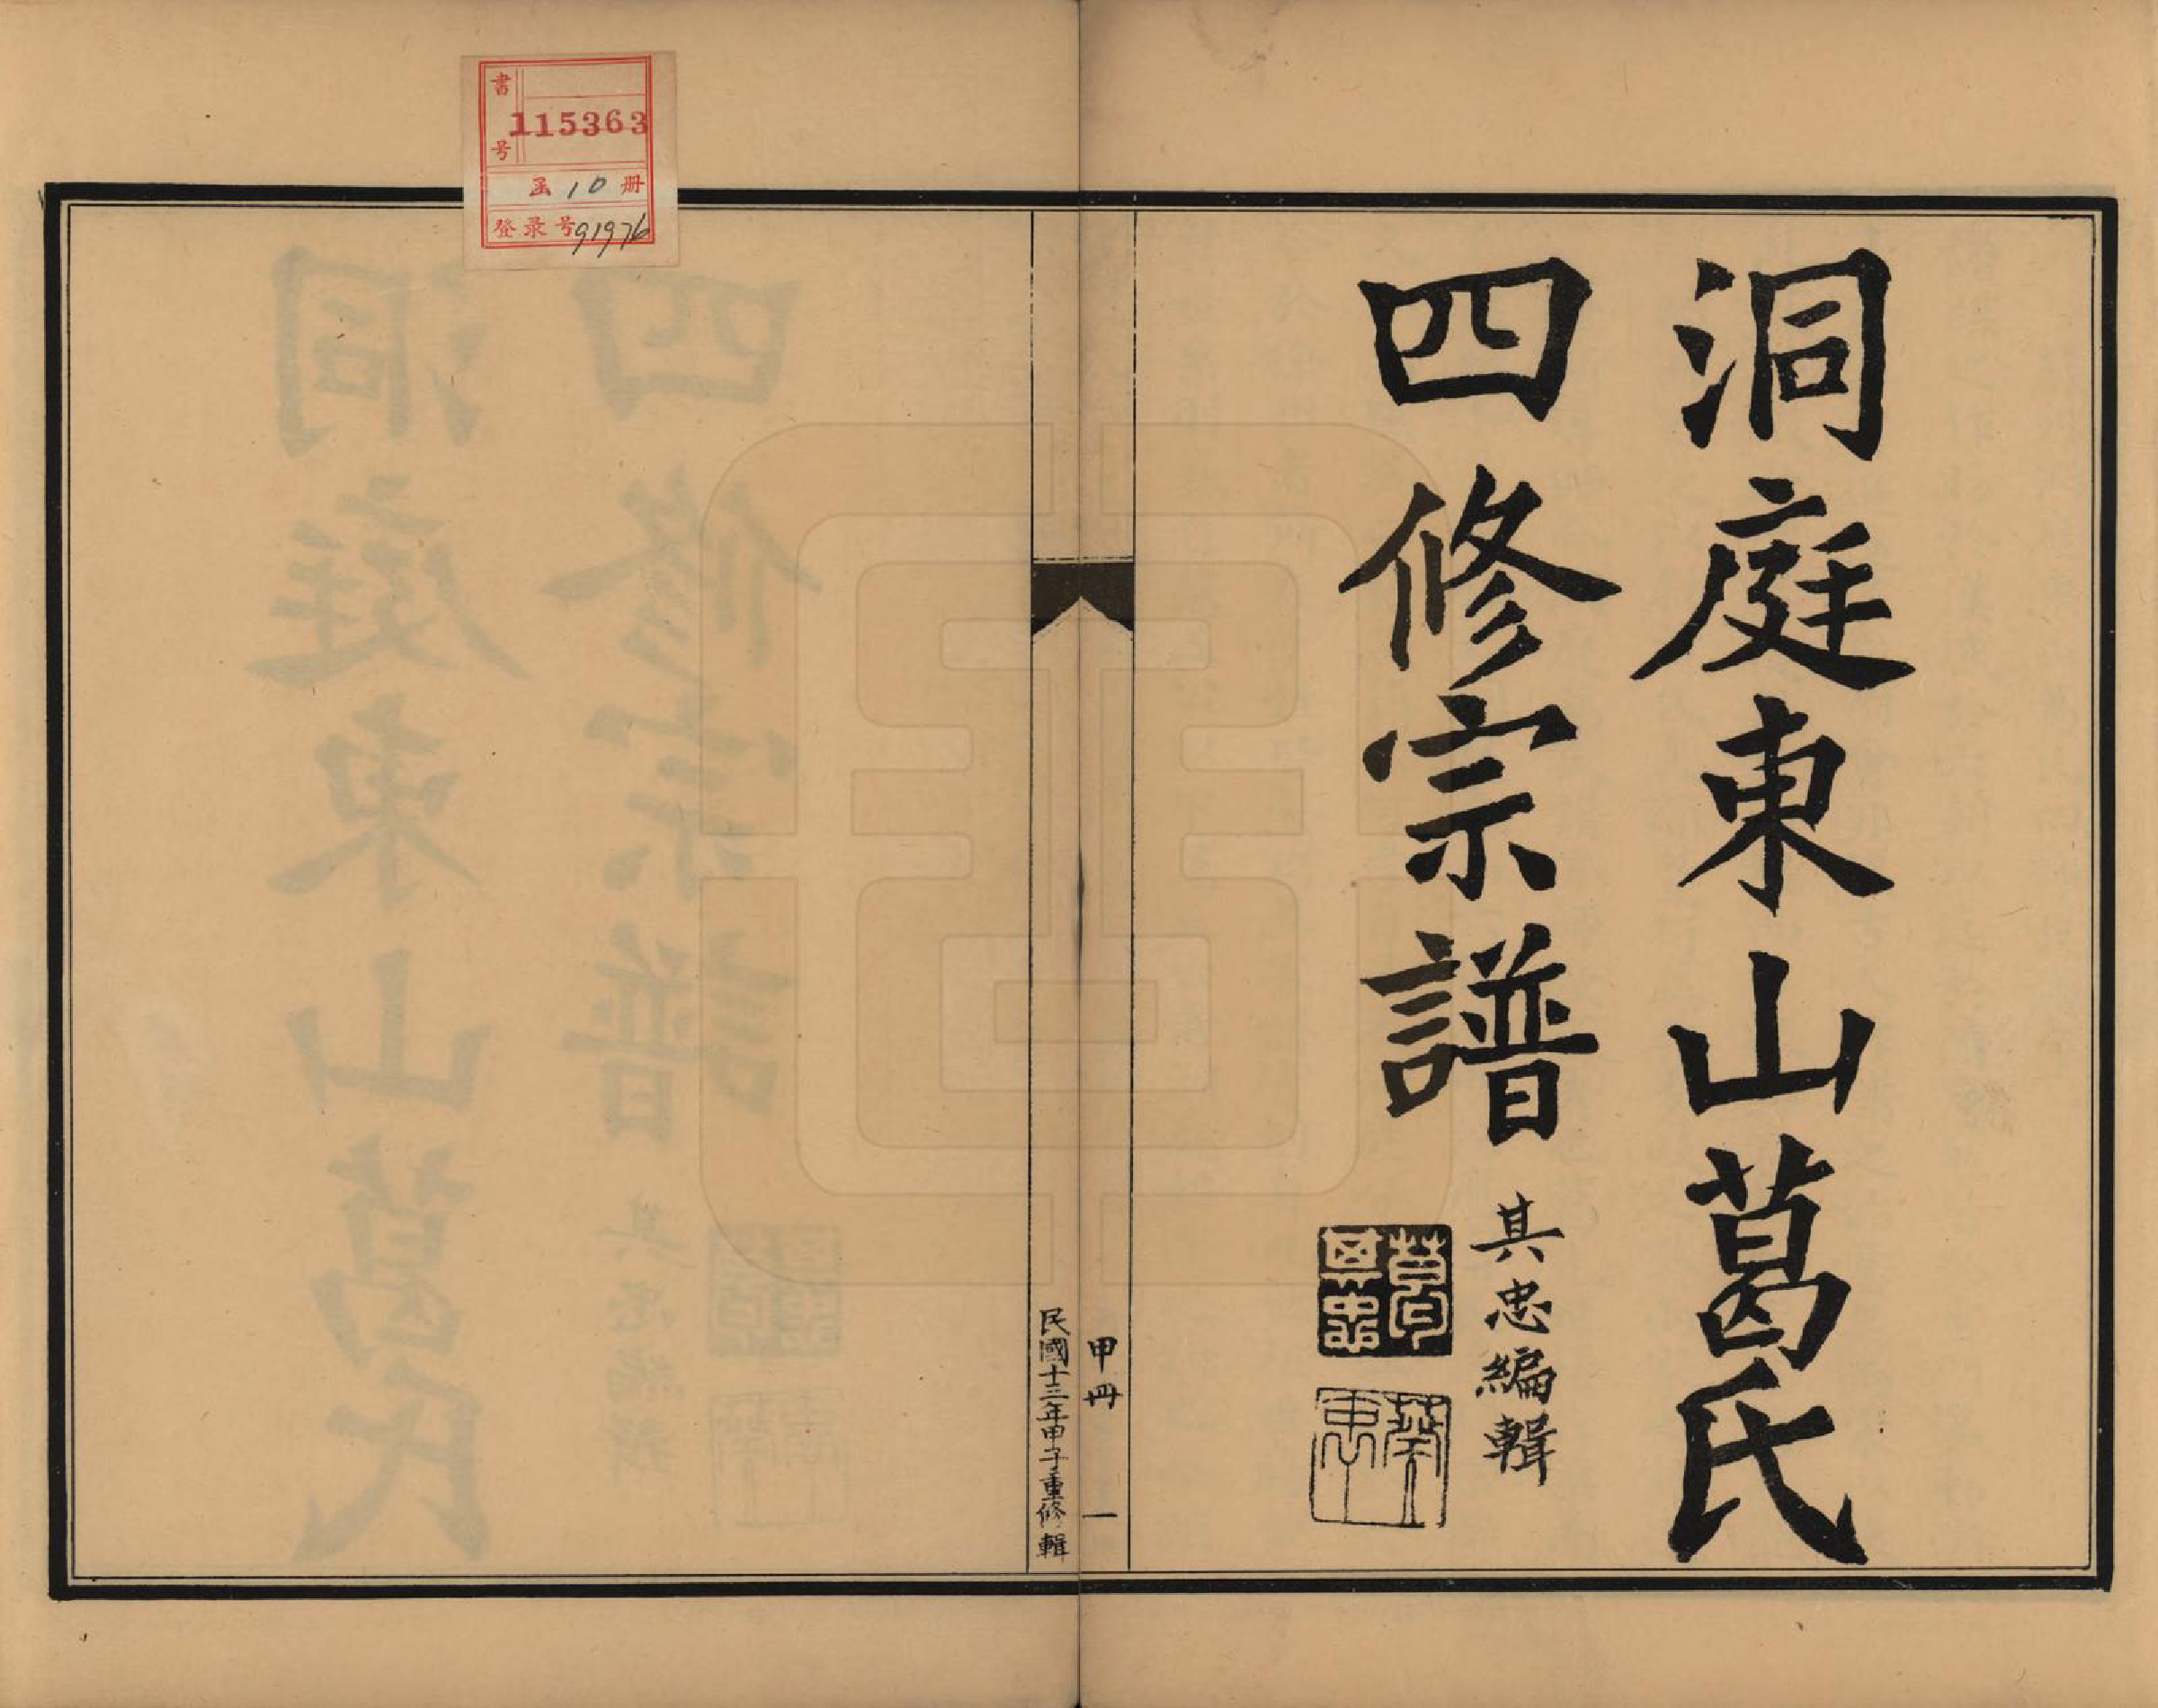 洞庭東山葛氏
四修宗譜
其忠編輯
葛印其忠
甲冊 一
民國十三年甲子重修輯
書号 115363
函 10 册
登录号 91976